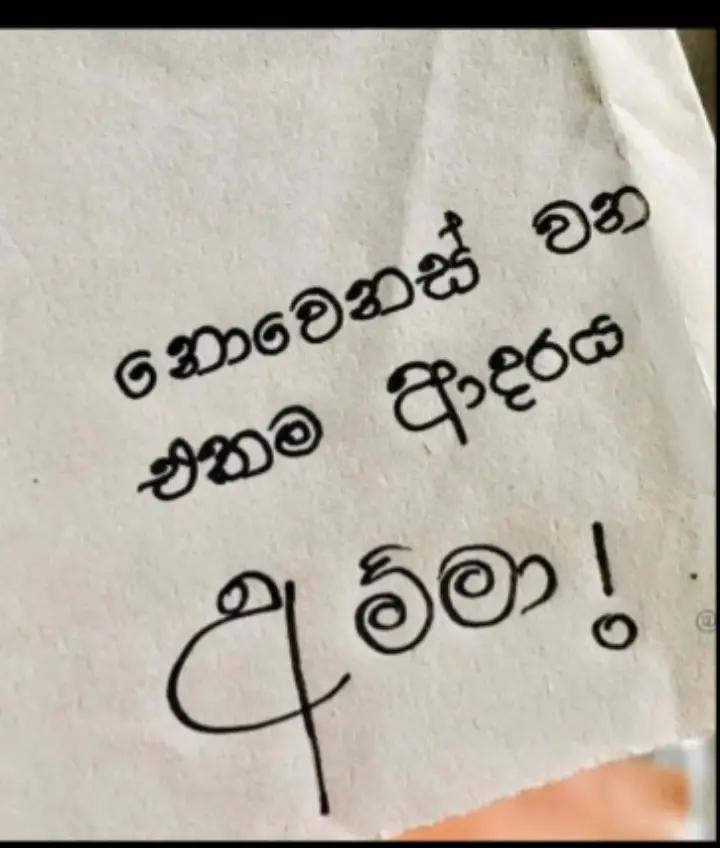 නොවෙනස් වන
එකම ආදරය
අම්මා!